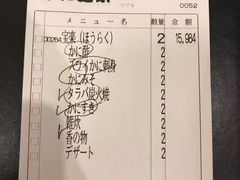 0052
メニュー名 数量 金額
00264 宝楽(ほうらく) 2 15,984
かに酢 2
ズワイかに刺身 2
かにみそ 2
タラバ炭火焼 2
かにすき 2
雑炊 2
香の物 2
デザート 2